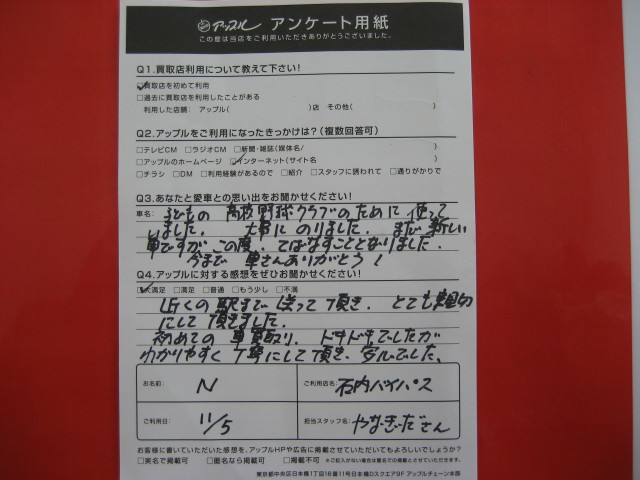 アップル アンケート用紙
この度は当店をご利用いただきありがとうございました。
Q1.買取店利用について教えて下さい!
☑買取店を初めて利用
□過去に買取店を利用したことがある
利用した店舗: アップル( )店 その他( )
Q2.アップルをご利用になったきっかけは?(複数回答可)
□テレビCM □ラジオCM □新聞・雑誌(媒体名/ )
□アップルのホームページ ☑インターネット(サイト名 )
□チラシ □DM □利用経験があるので □紹介 □スタッフに誘われて □通りがかりで
Q3.あなたと愛車との思い出をお聞かせください!
車名: 子どもの 高校野球クラブのために 使って
いました. 大事に のりました. まだ 新しい
車ですが この度. てばなすこととなりました.
今まで 車さんありがとう!
Q4.アップルに対する感想をぜひお聞かせください!
☑大満足 □満足 □普通 □もう少し □不満
近くの 駅まで 送って 頂き. とても 親切
にして 頂きました.
初めての 車買取り. ドキドキでしたが
わかりやすく 丁寧にして 頂き. 安心でした.
お名前: N
ご利用店名: 石内バイパス
ご利用日: 11/5
担当スタッフ名: やなぎだ さん
お客様に書いていただいた感想を、アップルHPや広告に掲載させていただいてもよろしいでしょうか?
□実名で掲載可 □匿名なら掲載可 □掲載不可 ※ご記入がない場合は匿名での掲載とさせていただきます。
東京都中央区日本橋1丁目16番11号日本橋Dスクエア9F アップルチェーン本部